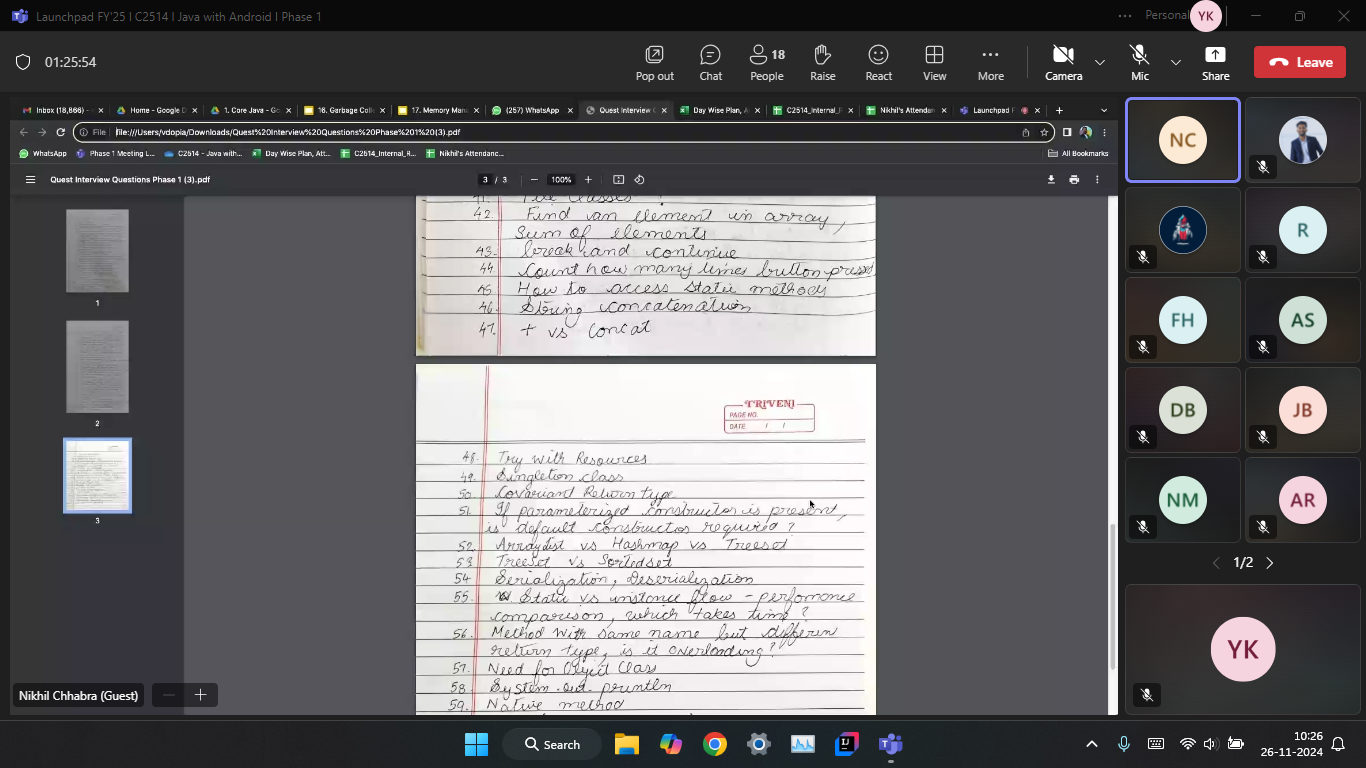 Launchpad FY'25 I C2514 I Java with Android I Phase 1
Personal
YK
01:25:54
Pop out
Chat
18
People
Raise
React
View
More
Camera
Mic
Share
Leave
Inbox (18,866) -
Home - Google D
1. Core Java - Go
16. Garbage Coll
17. Memory Man
(257) WhatsApp
Quest Interview C
Day Wise Plan, A
C2514_Internal_F
Nikhil's Attendan
Launchpad F
File
file:///Users/vdopia/Downloads/Quest%20Interview%20Questions%20Phase%201%20(3).pdf
WhatsApp
Phase 1 Meeting L...
C2514 - Java with...
Day Wise Plan, Att...
C2514_Internal_R...
Nikhil's Attendanc...
All Bookmarks
Quest Interview Questions Phase 1 (3).pdf
3 / 3
100%
1
2
3
42. Find an element in array,
Sum of elements
43. break and continue
44. Count how many times button press
45. How to access static methods
46. String concatenation
47. + vs concat
TRIVENI
PAGE NO.
DATE / /
48. Try with Resources
49. Singleton class
50. Covariant Return type
51. If parameterized constructor is present,
is default constructor required?
52. Arraylist vs Hashmap vs Treeset
53. TreeSet vs Sortedset
54. Serialization, Deserialization
55. Static vs instance flow - perfomance
comparison, which takes time?
56. Method with same name but differen
return type, is it overloading?
57. Need for Object Class
58. System.out.println
59. Native method
Nikhil Chhabra (Guest)
NC
R
FH
AS
DB
JB
NM
AR
1/2
YK
Search
10:26
26-11-2024